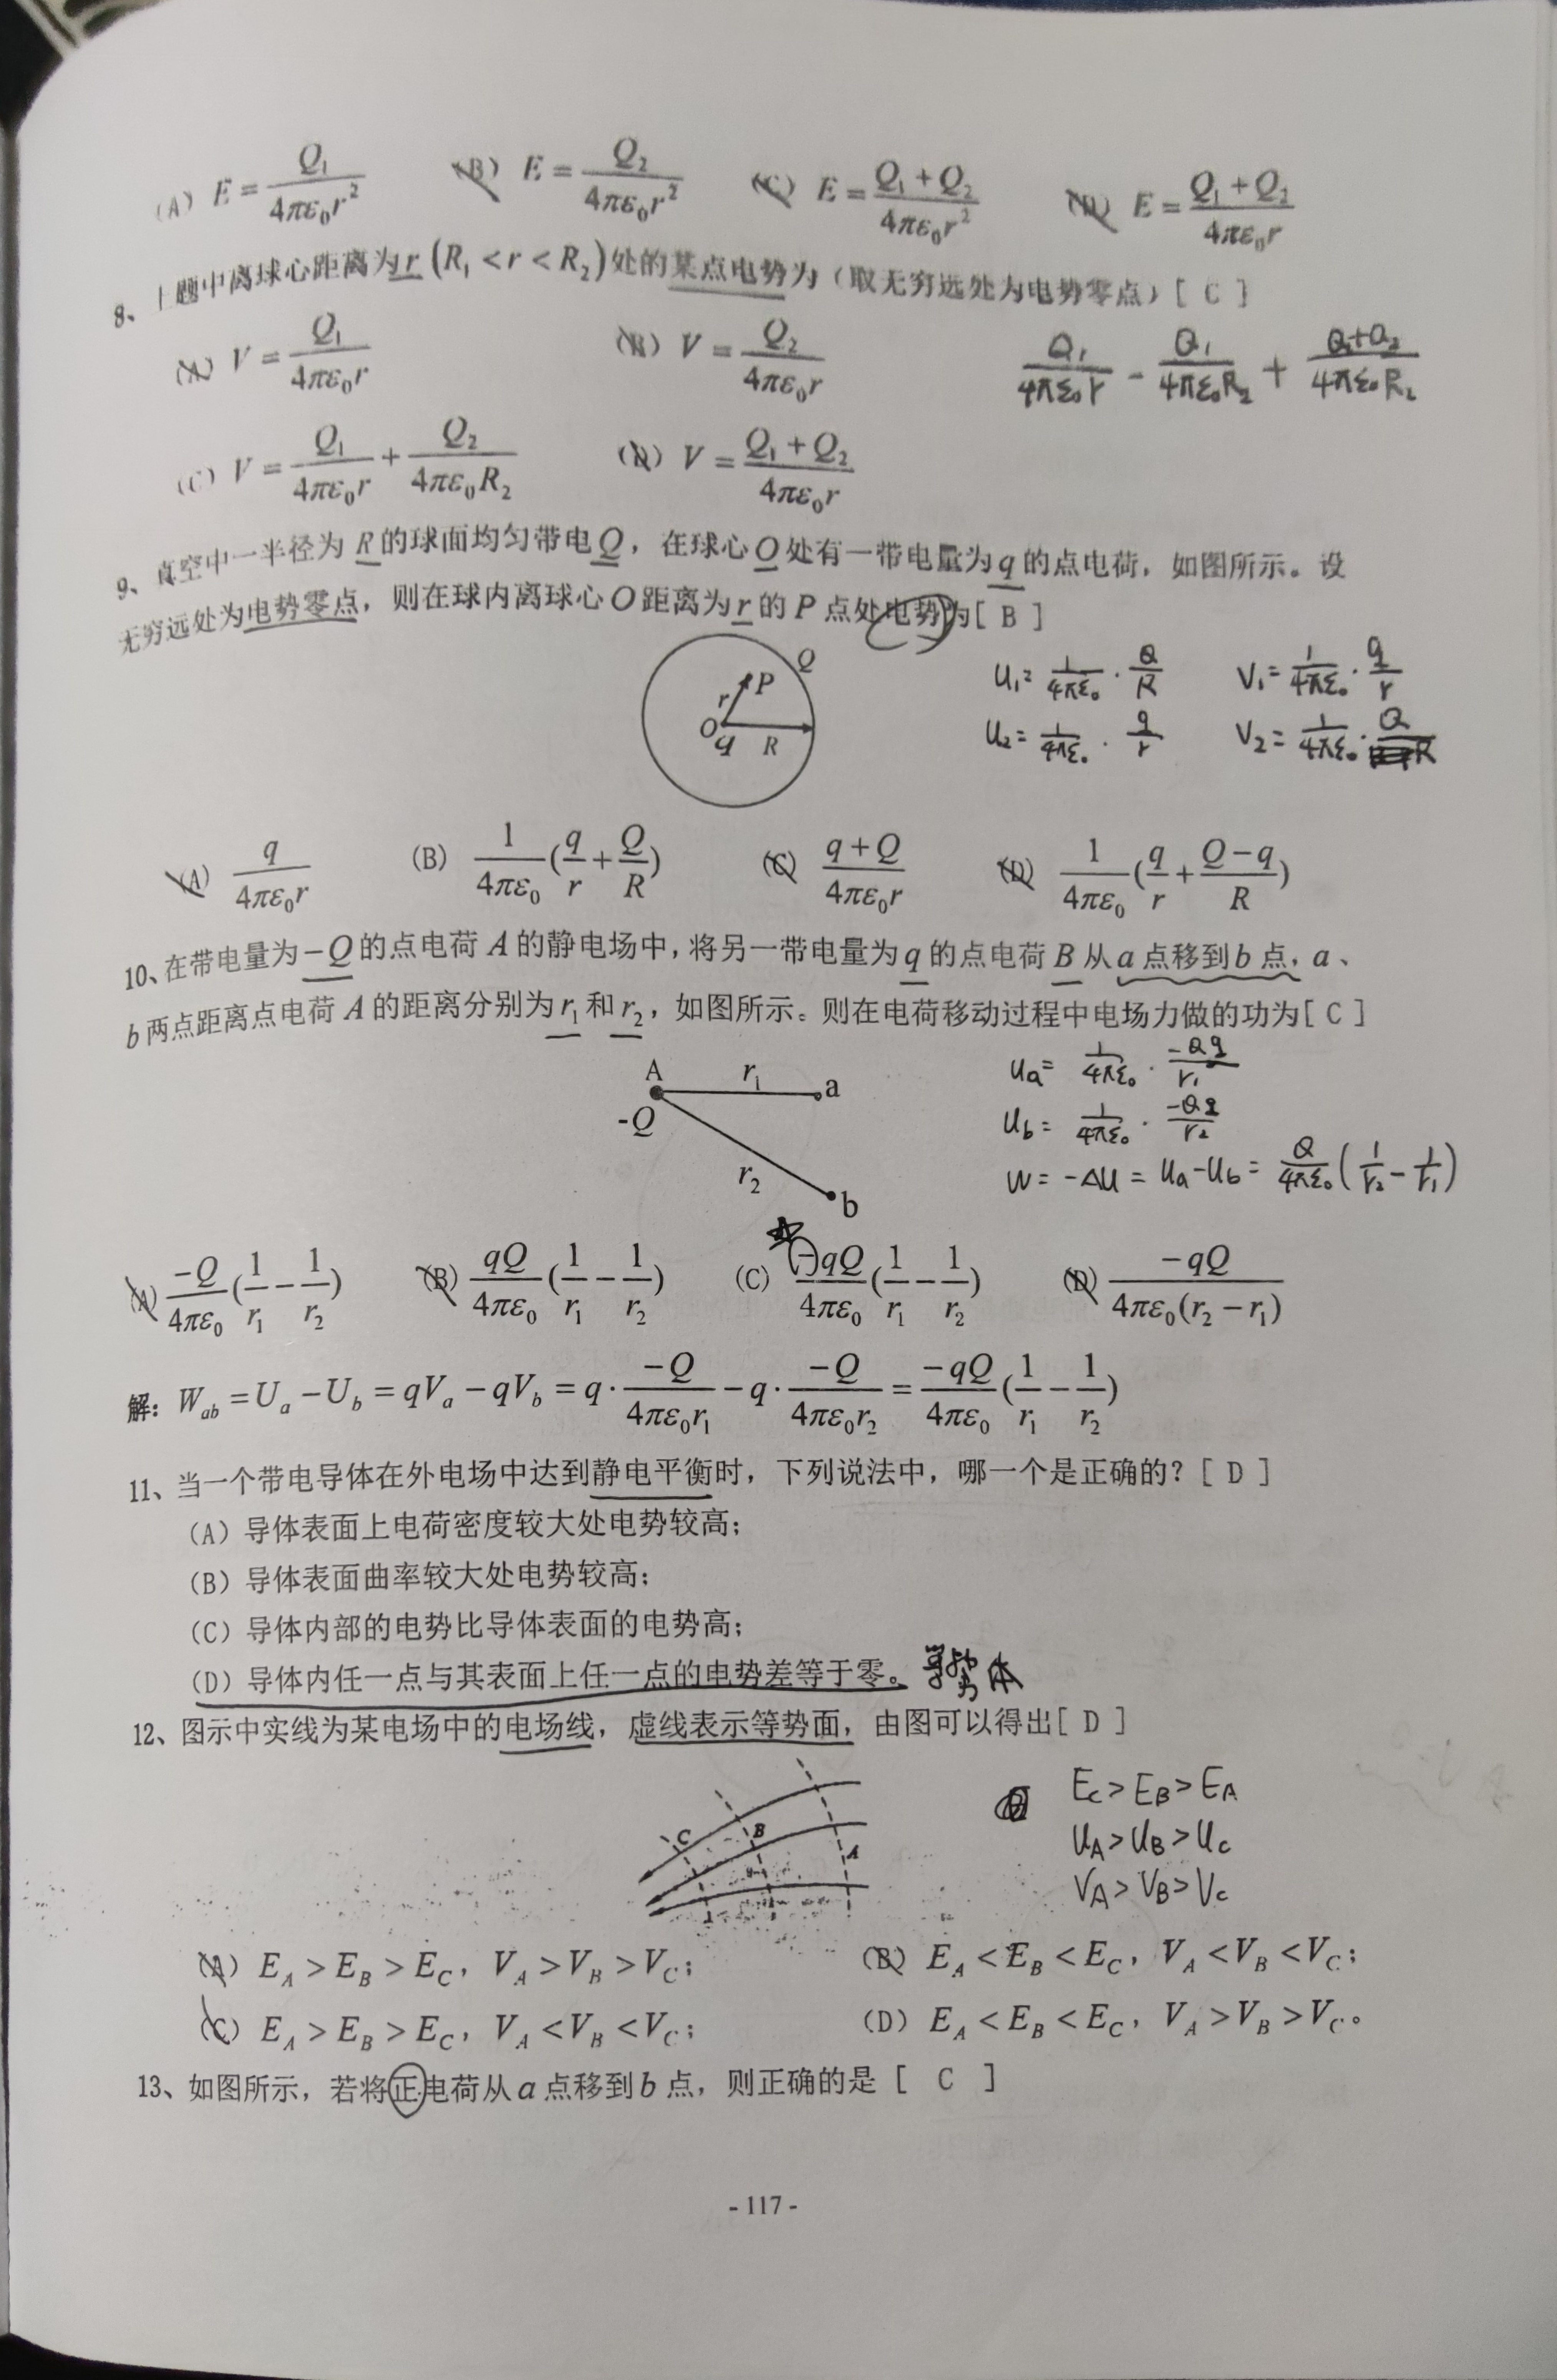 (A) E = Q₁/(4πε₀r²) (B) E = Q₂/(4πε₀r²) (C) E = (Q₁+Q₂)/(4πε₀r²) (D) E = (Q₁+Q₂)/(4πε₀r)
8、上题中离球心距离为r (R₁<r<R₂)处的某点电势为（取无穷远处为电势零点）[ C ]
(A) V = Q₁/(4πε₀r) (B) V = Q₂/(4πε₀r)
Q₁/(4πε₀r) - Q₁/(4πε₀R₂) + (Q₁+Q₂)/(4πε₀R₂)
(C) V = Q₁/(4πε₀r) + Q₂/(4πε₀R₂) (D) V = (Q₁+Q₂)/(4πε₀r)
9、真空中一半径为R的球面均匀带电Q，在球心O处有一带电量为q的点电荷，如图所示。设
无穷远处为电势零点，则在球内离球心O距离为r的P点处电势为[ B ]
Q
P
r
O
q
R
U₁= 1/(4πε₀) · Q/R V₁= 1/(4πε₀) · q/r
U₂= 1/(4πε₀) · q/r V₂= 1/(4πε₀) · Q/R
(A) q/(4πε₀r) (B) 1/(4πε₀) (q/r + Q/R) (C) (q+Q)/(4πε₀r) (D) 1/(4πε₀) (q/r + (Q-q)/R)
10、在带电量为-Q的点电荷A的静电场中，将另一带电量为q的点电荷B从a点移到b点，a、
b两点距离点电荷A的距离分别为r₁和r₂，如图所示。则在电荷移动过程中电场力做的功为[ C ]
A r₁ a
-Q
r₂
b
Ua= 1/(4πε₀) · -Qq/r₁
Ub= 1/(4πε₀) · -Qq/r₂
W = -ΔU = Ua-Ub = Q/(4πε₀) (1/r₂ - 1/r₁)
(A) -Q/(4πε₀) (1/r₁ - 1/r₂) (B) qQ/(4πε₀) (1/r₁ - 1/r₂) (C) -qQ/(4πε₀) (1/r₁ - 1/r₂) (D) -qQ/(4πε₀(r₂-r₁))
解：W_ab = U_a - U_b = qV_a - qV_b = q · -Q/(4πε₀r₁) - q · -Q/(4πε₀r₂) = -qQ/(4πε₀) (1/r₁ - 1/r₂)
11、当一个带电导体在外电场中达到静电平衡时，下列说法中，哪一个是正确的？[ D ]
（A）导体表面上电荷密度较大处电势较高；
（B）导体表面曲率较大处电势较高；
（C）导体内部的电势比导体表面的电势高；
（D）导体内任一点与其表面上任一点的电势差等于零。 等势体
12、图示中实线为某电场中的电场线，虚线表示等势面，由图可以得出[ D ]
C
B
A
E_C>E_B>E_A
U_A>U_B>U_C
V_A>V_B>V_C
(A) E_A>E_B>E_C，V_A>V_B>V_C； (B) E_A<E_B<E_C，V_A<V_B<V_C；
(C) E_A>E_B>E_C，V_A<V_B<V_C； (D) E_A<E_B<E_C，V_A>V_B>V_C。
13、如图所示，若将正电荷从a点移到b点，则正确的是 [ C ]
- 117 -